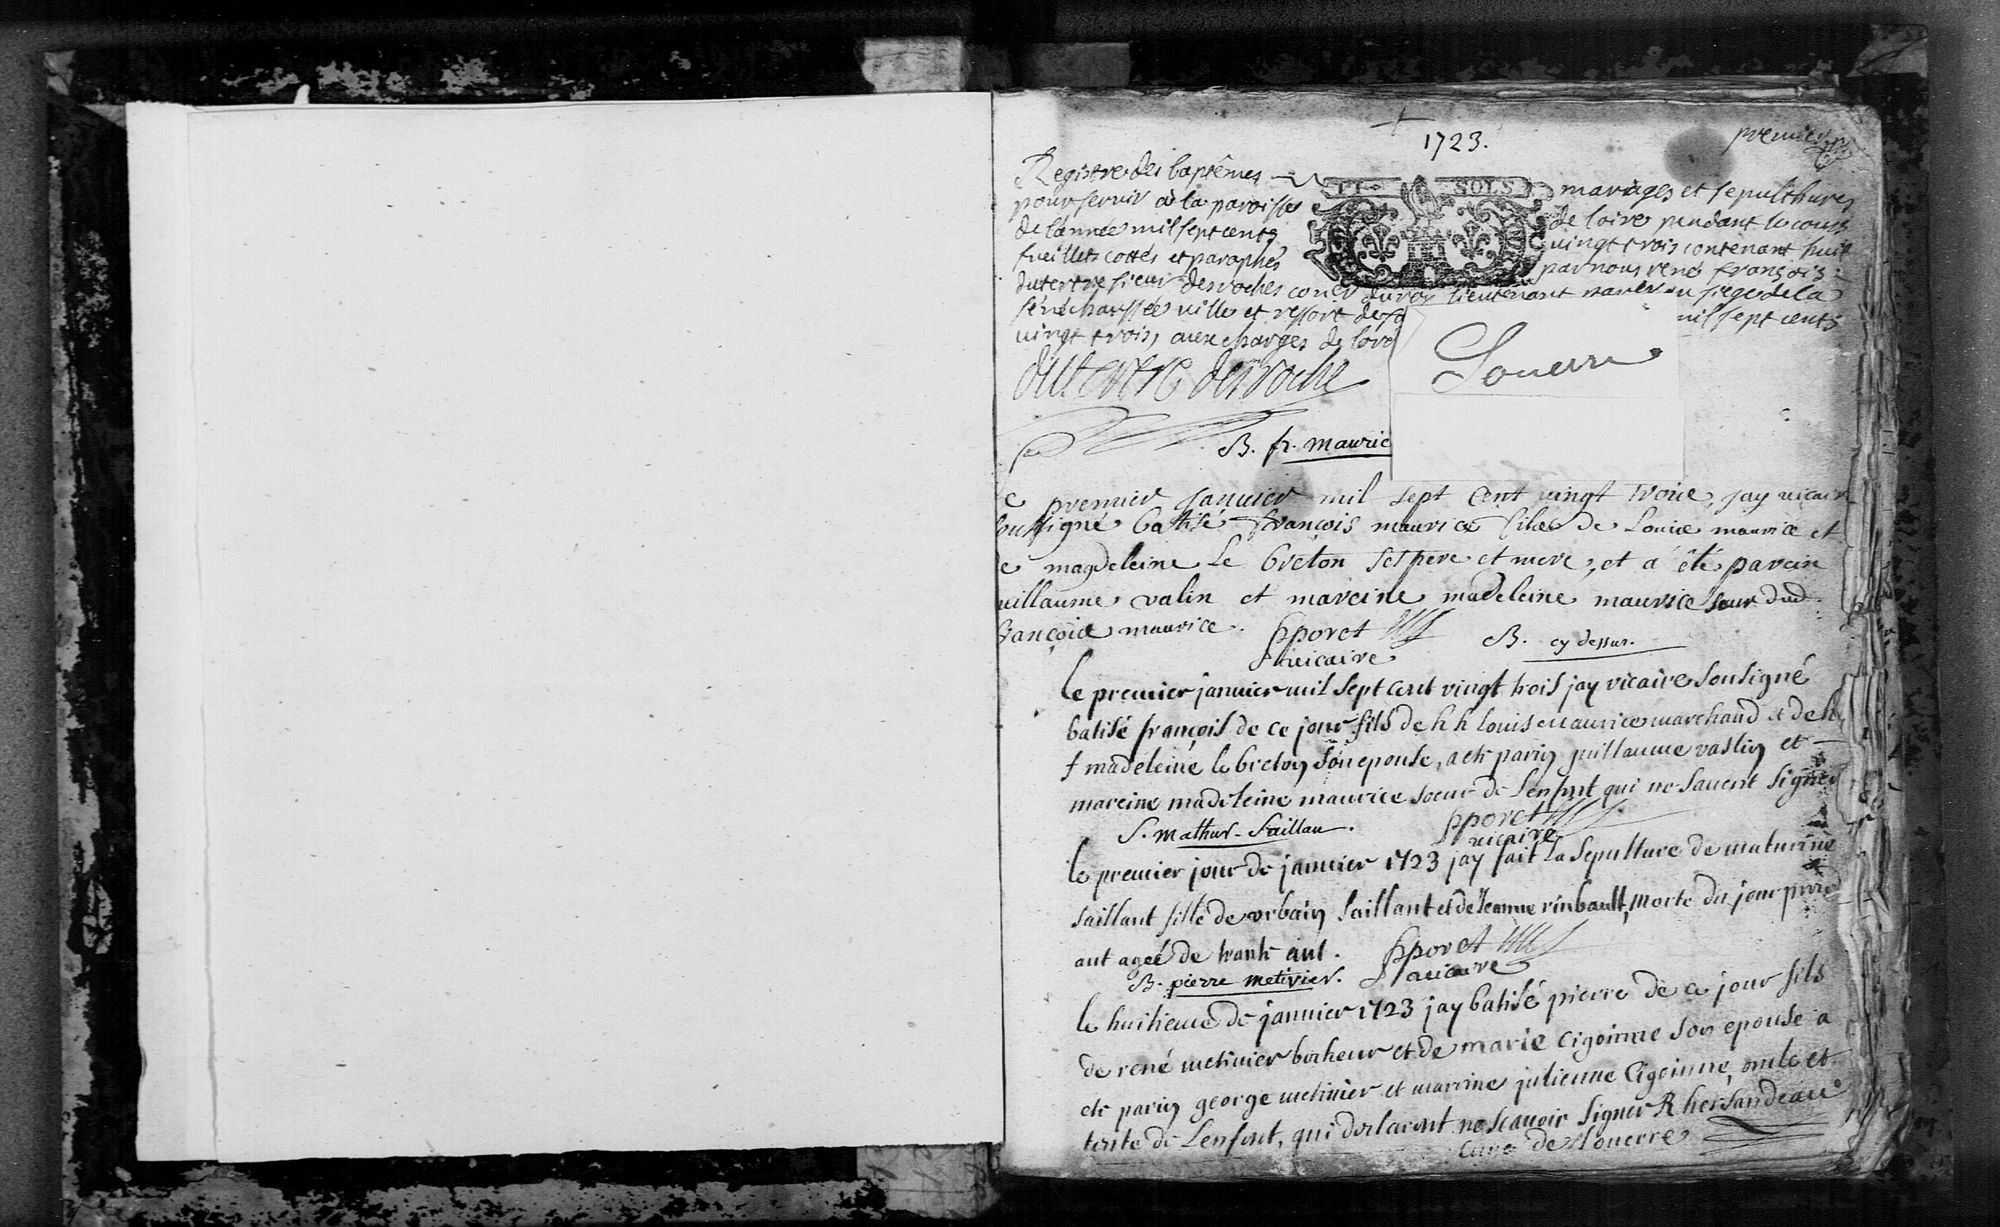 1723.
premier
Registre des baptêmes mariages et sepulthures
pour servir à la paroisse de loire pendant le cours
de lánnée mil sept cents vingt trois contenant huit
fueillets cottés et paraphés par nous rené françois
dutertre sieur desroches coner du roy lieutenant siege de la
sénéchaussée ville et ressort de mil sept cents
vingt trois, aux charges de lord
dutertre desroche
Louerre
B. fr. mauric
e premier janvier mil sept Cent vingt troie, jay vicair
soussigné batisé françois maurice filee de Louie maurice et
e magdeleine Le breton ses pere et mere, et a été parein
uillaume valin et mareine madeleine maurice seur dud.
françoie maurice. pporet
vicaire
B. cy dessus.
le premier janvier mil sept cent vingt trois jay vicaire sousigné
batisé françois de ce jour fils de h h louis maurice marchand et de h
f madeleine le breton son epouse, a ete parin guillaume vaslin et
mareine madeleine maurice soeur de Lenfant qui ne savent signer
pporet
vicaire
S. mathur. Saillan.
le premier jour de janvier 1723 jay fait la sepulture de maturine
saillant fille de vrbain saillant et de Jeanne rinbault, morte du jour
ant ageé de trante ant. pporet
vicaire
B. pierre metivier.
le huitieme de janvier 1723 jay batisé pierre de ce jour fils
de rené metivier bucheur et de marie cigoinne son epouse a
ete parin george metivier et marrine julienne Cigoinne, oncle et
tente de Lenfent, qui declarent ne scavoir signer R hersandeau
Curé de Louerre